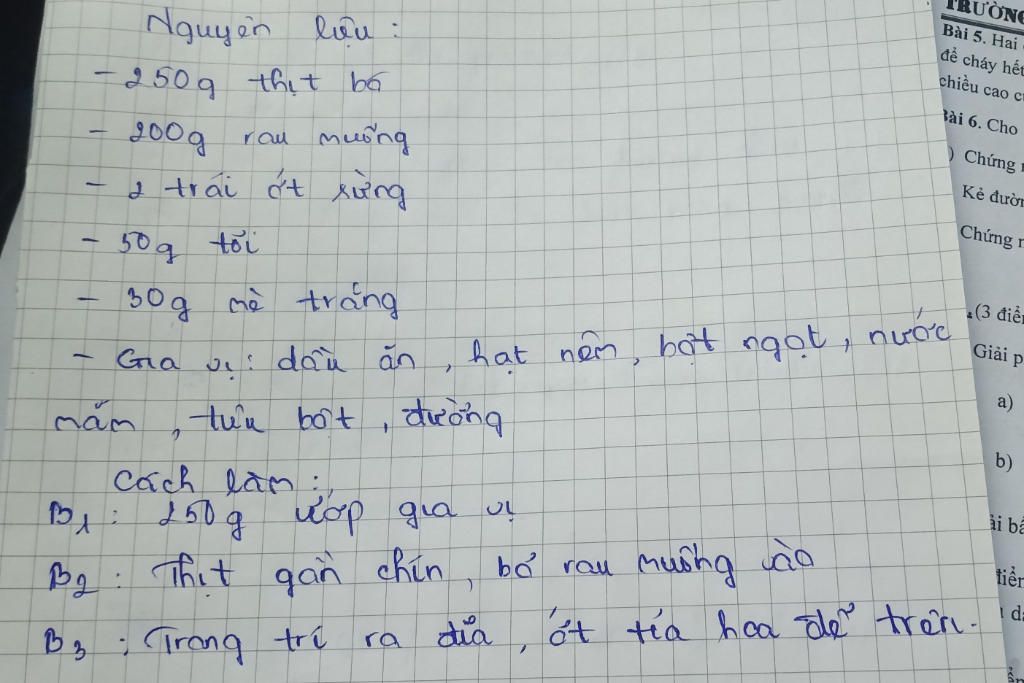 Nguyên liệu :
- 250g thịt bò
- 200g rau muống
- 2 trái ớt sừng
- 50g tỏi
- 30g mè trắng
- Gia vị : dầu ăn , hạt nêm , bột ngọt , nước
mắm , tiêu bột , đường
Cách làm :
B1 : 250g ướp gia vị
B2 : Thịt gần chín , bỏ rau muống vào
B3 : Trang trí ra đĩa , ớt tỉa hoa để trên.
TRƯỜNG
Bài 5. Hai
để cháy hết
chiều cao
Bài 6. Cho
) Chứng
Kẻ đườn
Chứng
(3 điể
Giải p
a)
b)